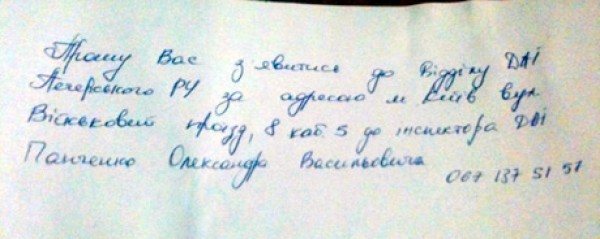 Прошу Вас з'явитись до Відділу ДАІ
Печерського РУ за адресою м Київ вул.
Військовий проїзд, 8 каб. 5 до інспектора ДАІ
Панченко Олександра Васильовича
067 137 51 57